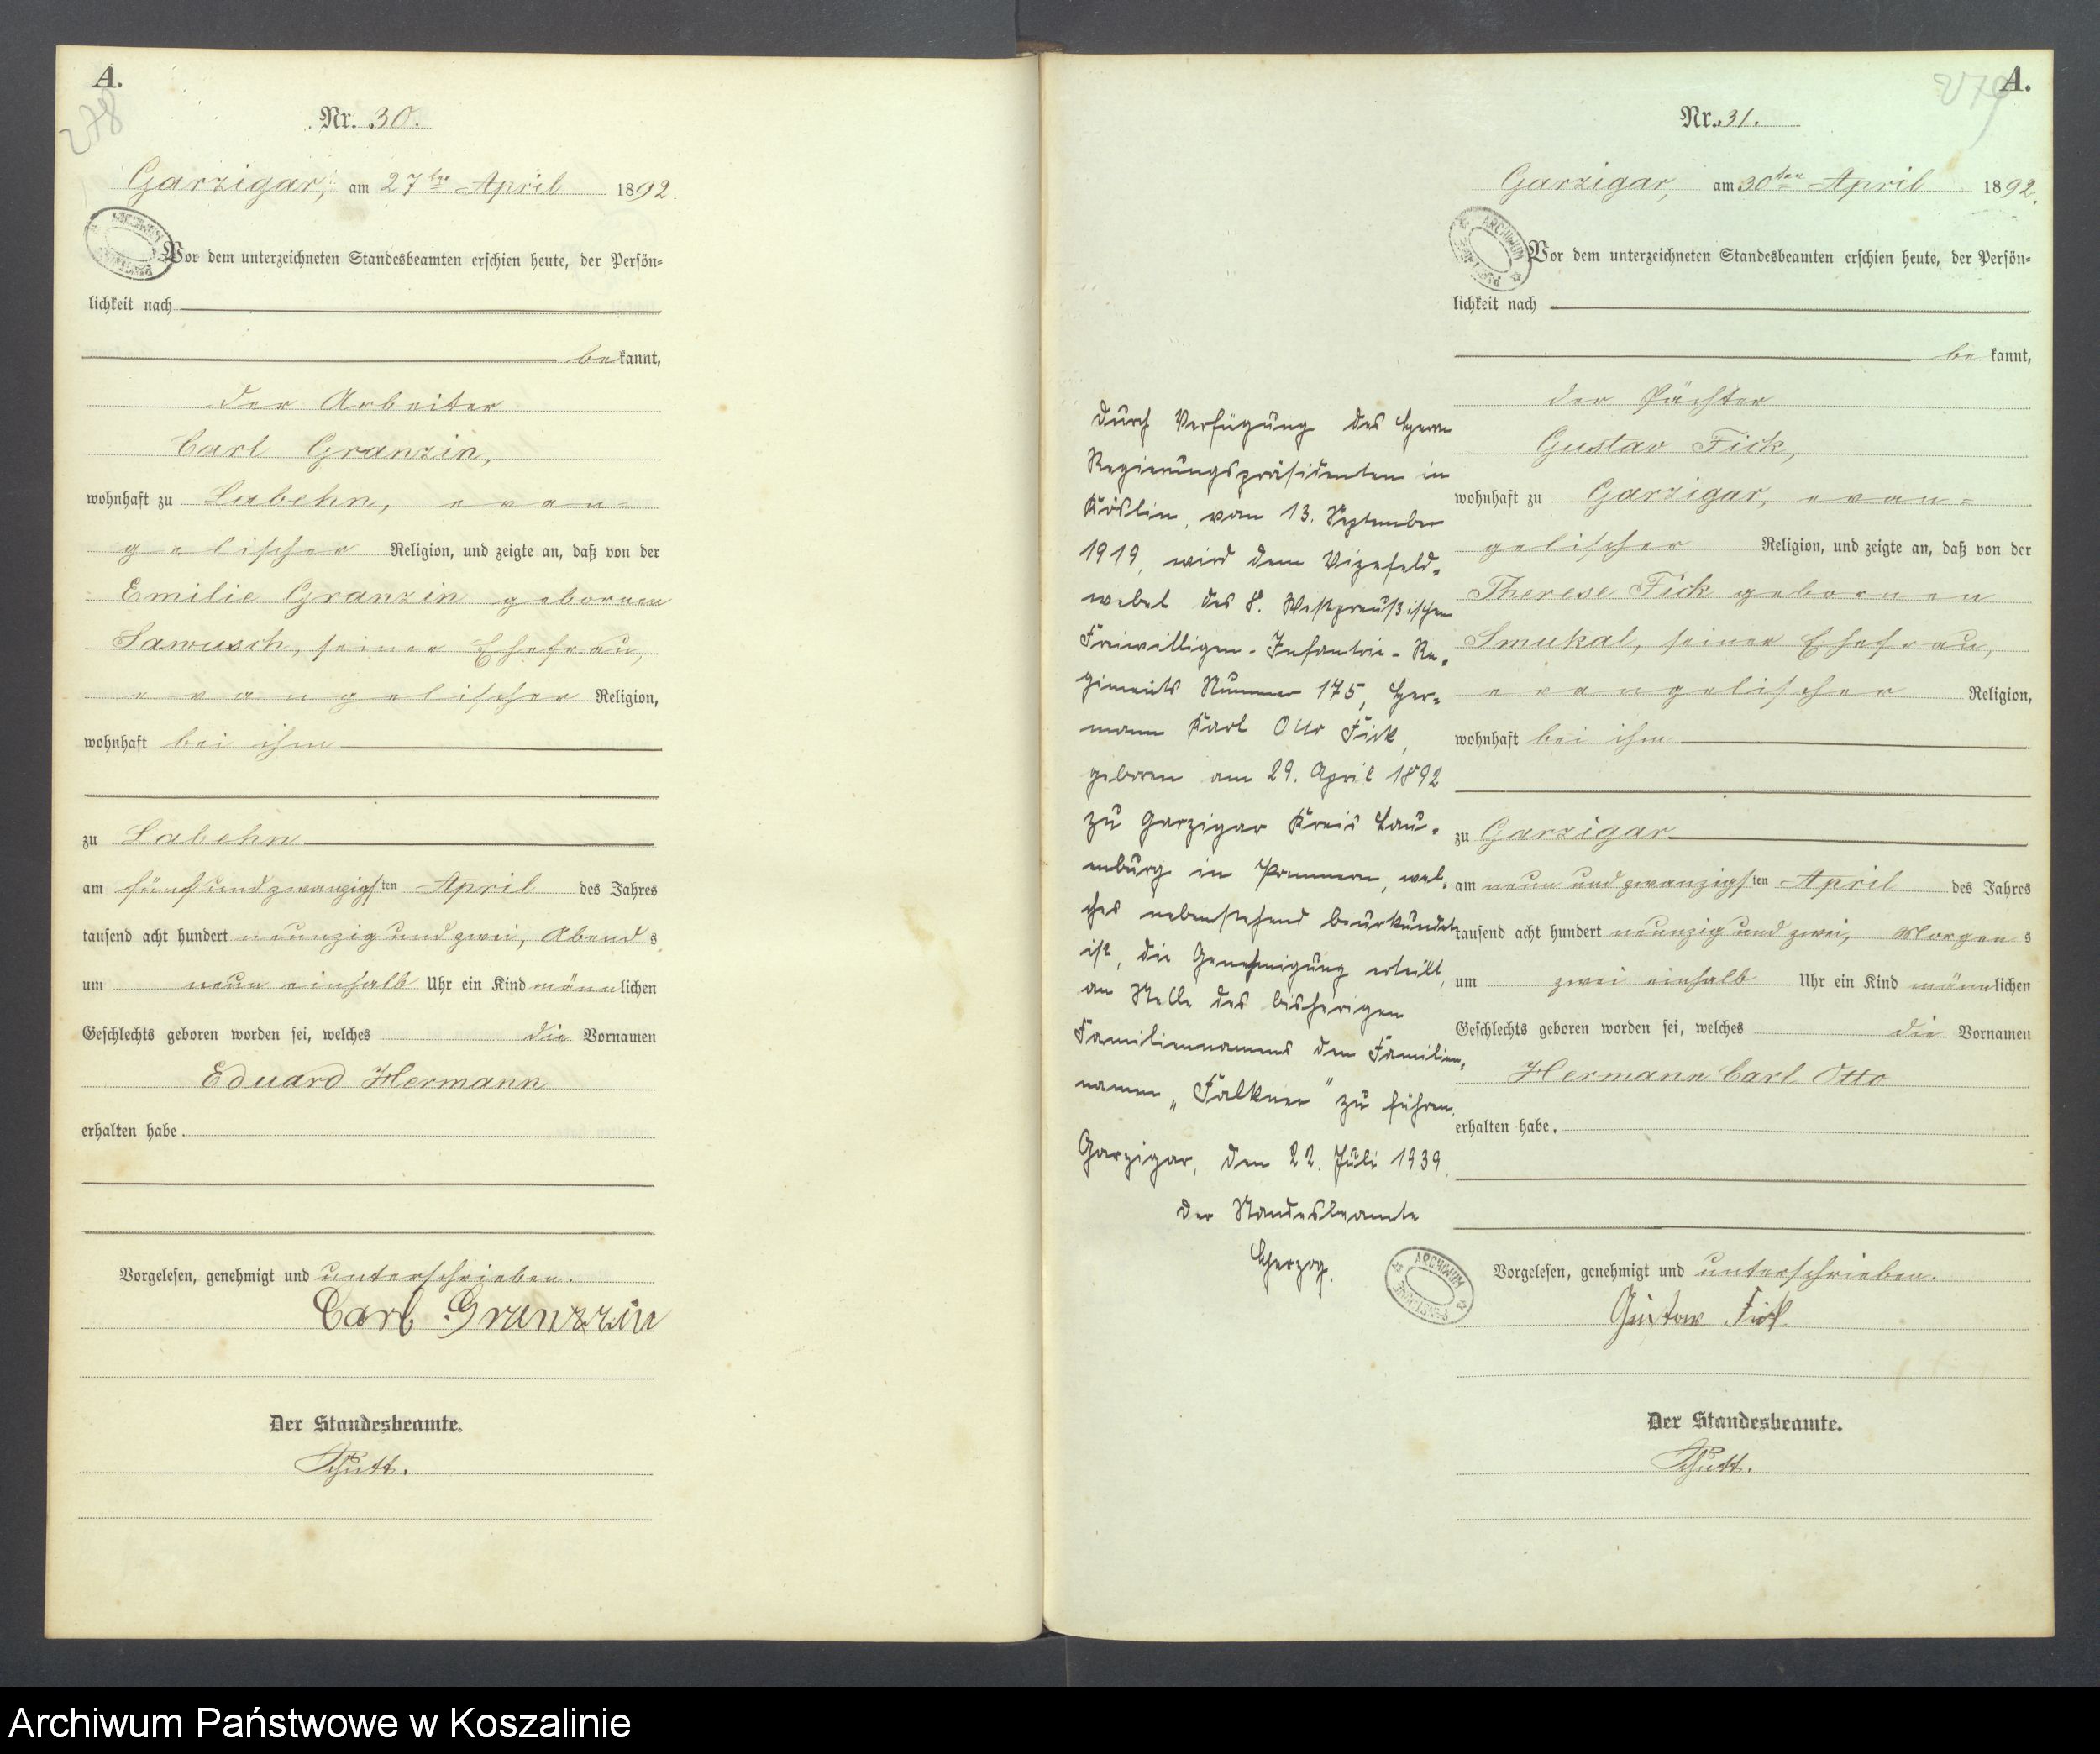 A.
278
Nr. 30.
Garzigar, am 27ten April 1892.
Vor dem unterzeichneten Standesbeamten erschien heute, der Persön-
lichkeit nach
bekannt,
der Arbeiter
Carl Granzin,
wohnhaft zu Labehn, evan-
gelischer Religion, und zeigte an, daß von der
Emilie Granzin gebornen
Sawusch, seiner Ehefrau,
evangelischer Religion,
wohnhaft bei ihm
zu Labehn
am fünf und zwanzigsten April des Jahres
tausend acht hundert neunzig und zwei, Abends
um neun einhalb Uhr ein Kind männlichen
Geschlechts geboren worden sei, welches die Vornamen
Eduard Hermann
erhalten habe.
Vorgelesen, genehmigt und unterschrieben.
Carl Granzin
Der Standesbeamte.
A.
279
Nr. 31.
Garzigar, am 30ten April 1892.
ARCHIWUM
Vor dem unterzeichneten Standesbeamten erschien heute, der Persön-
lichkeit nach
bekannt,
der Pächter
Gustav Fick,
wohnhaft zu Garzigar, evan-
gelischer Religion, und zeigte an, daß von der
Therese Fick gebornen
Smukal, seiner Ehefrau,
evangelischer Religion,
wohnhaft bei ihm
zu Garzigar
am neun und zwanzigsten April des Jahres
tausend acht hundert neunzig und zwei, Morgens
um zwei einhalb Uhr ein Kind männlichen
Geschlechts geboren worden sei, welches die Vornamen
Hermann Carl Otto
erhalten habe.
Vorgelesen, genehmigt und unterschrieben.
Gustav Fick
Der Standesbeamte.
Durch Verfügung des Herrn
Regierungspräsidenten in
Köslin, vom 13. September
1919, wird dem Vizefeld-
webel des 8. Westpreußischen
Freiwilligen-Infantrie-Re-
giments Nummer 175, Her-
mann Karl Otto Fick,
geboren am 29. April 1892
zu Garzigar Kreis Lau-
enburg in Pommern, wel-
ches nebenstehend beurkundet
ist, die Genehmigung erteilt,
an Stelle des bisherigen
Familiennamens den Familien-
namen „Falkner" zu führen.
Garzigar, den 22. Juli 1939.
Der Standesbeamte
Herzog.
ARCHIWUM
Archiwum Państwowe w Koszalinie